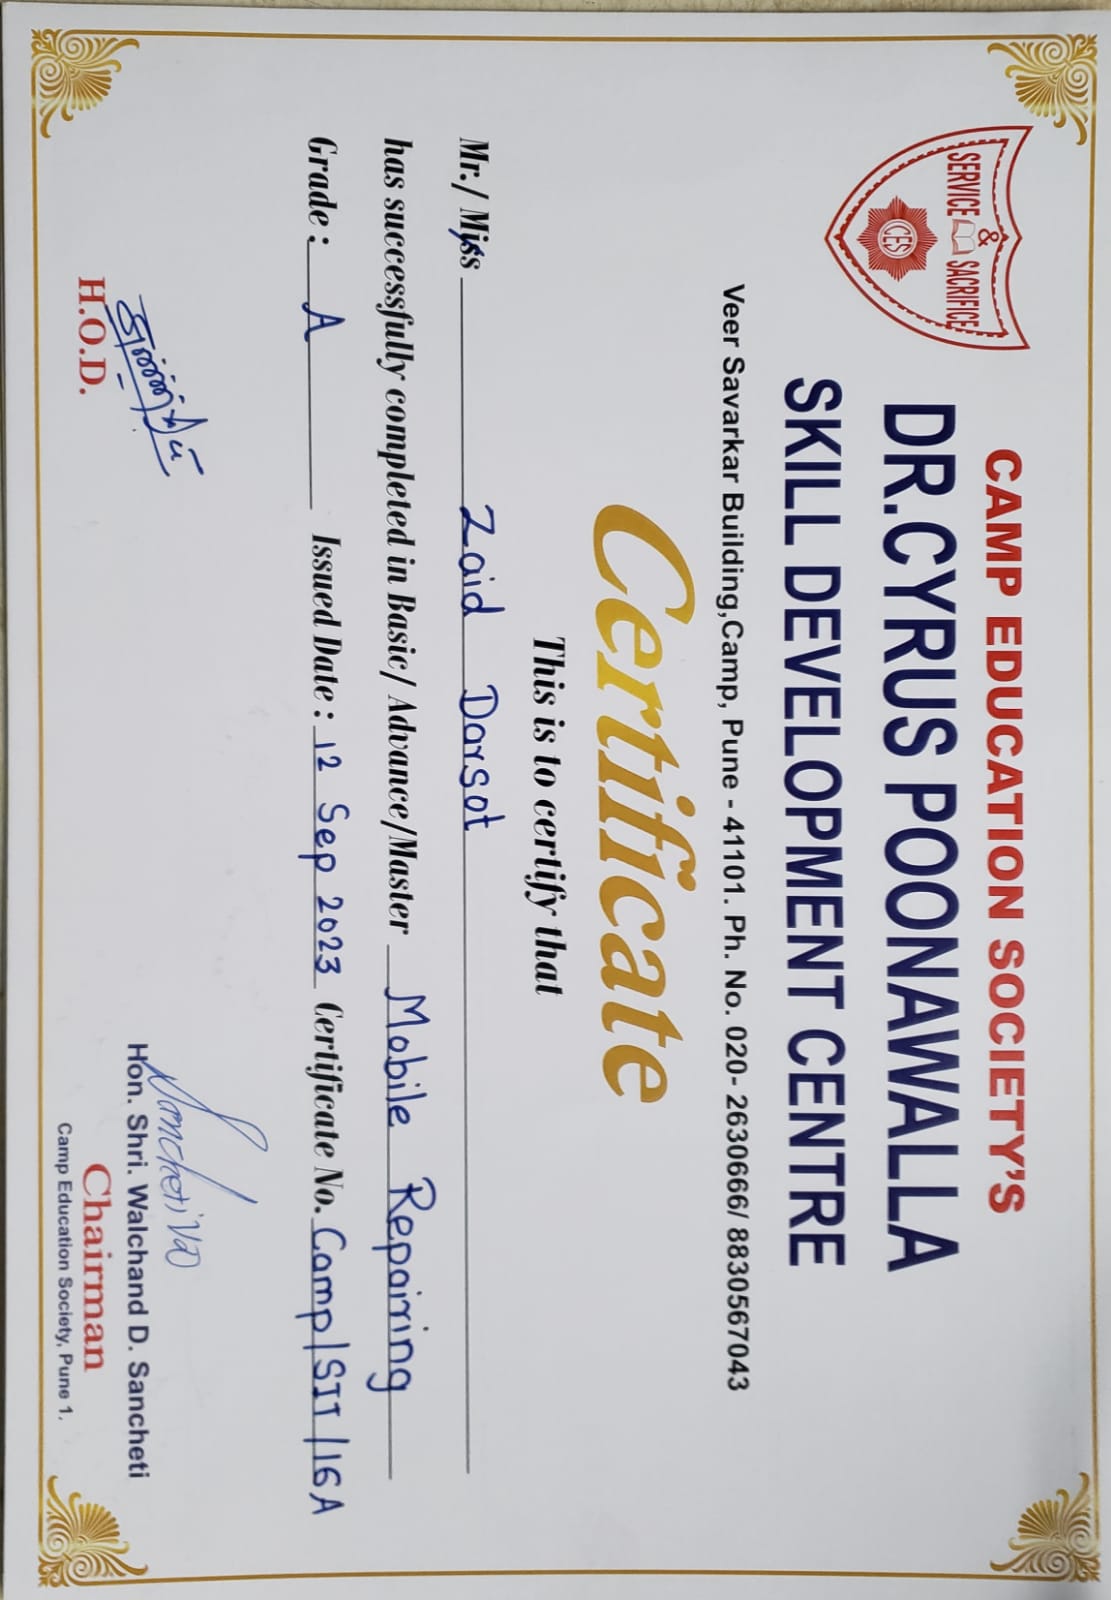 &
SERVICE SACRIFICE
CES
CAMP EDUCATION SOCIETY'S
DR.CYRUS POONAWALLA
SKILL DEVELOPMENT CENTRE
Veer Savarkar Building,Camp, Pune - 41101. Ph. No. 020- 2630666/ 8830567043
Certificate
This is to certify that
Mr./ Miss Zaid Darsot
has successfully completed in Basic/ Advance/Master Mobile Repairing
Grade : A Issued Date : 12 Sep 2023 Certificate No. Camp/SIT/16A
Sancheti VD
Hon. Shri. Walchand D. Sancheti
H.O.D.
Chairman
Camp Education Society, Pune 1.